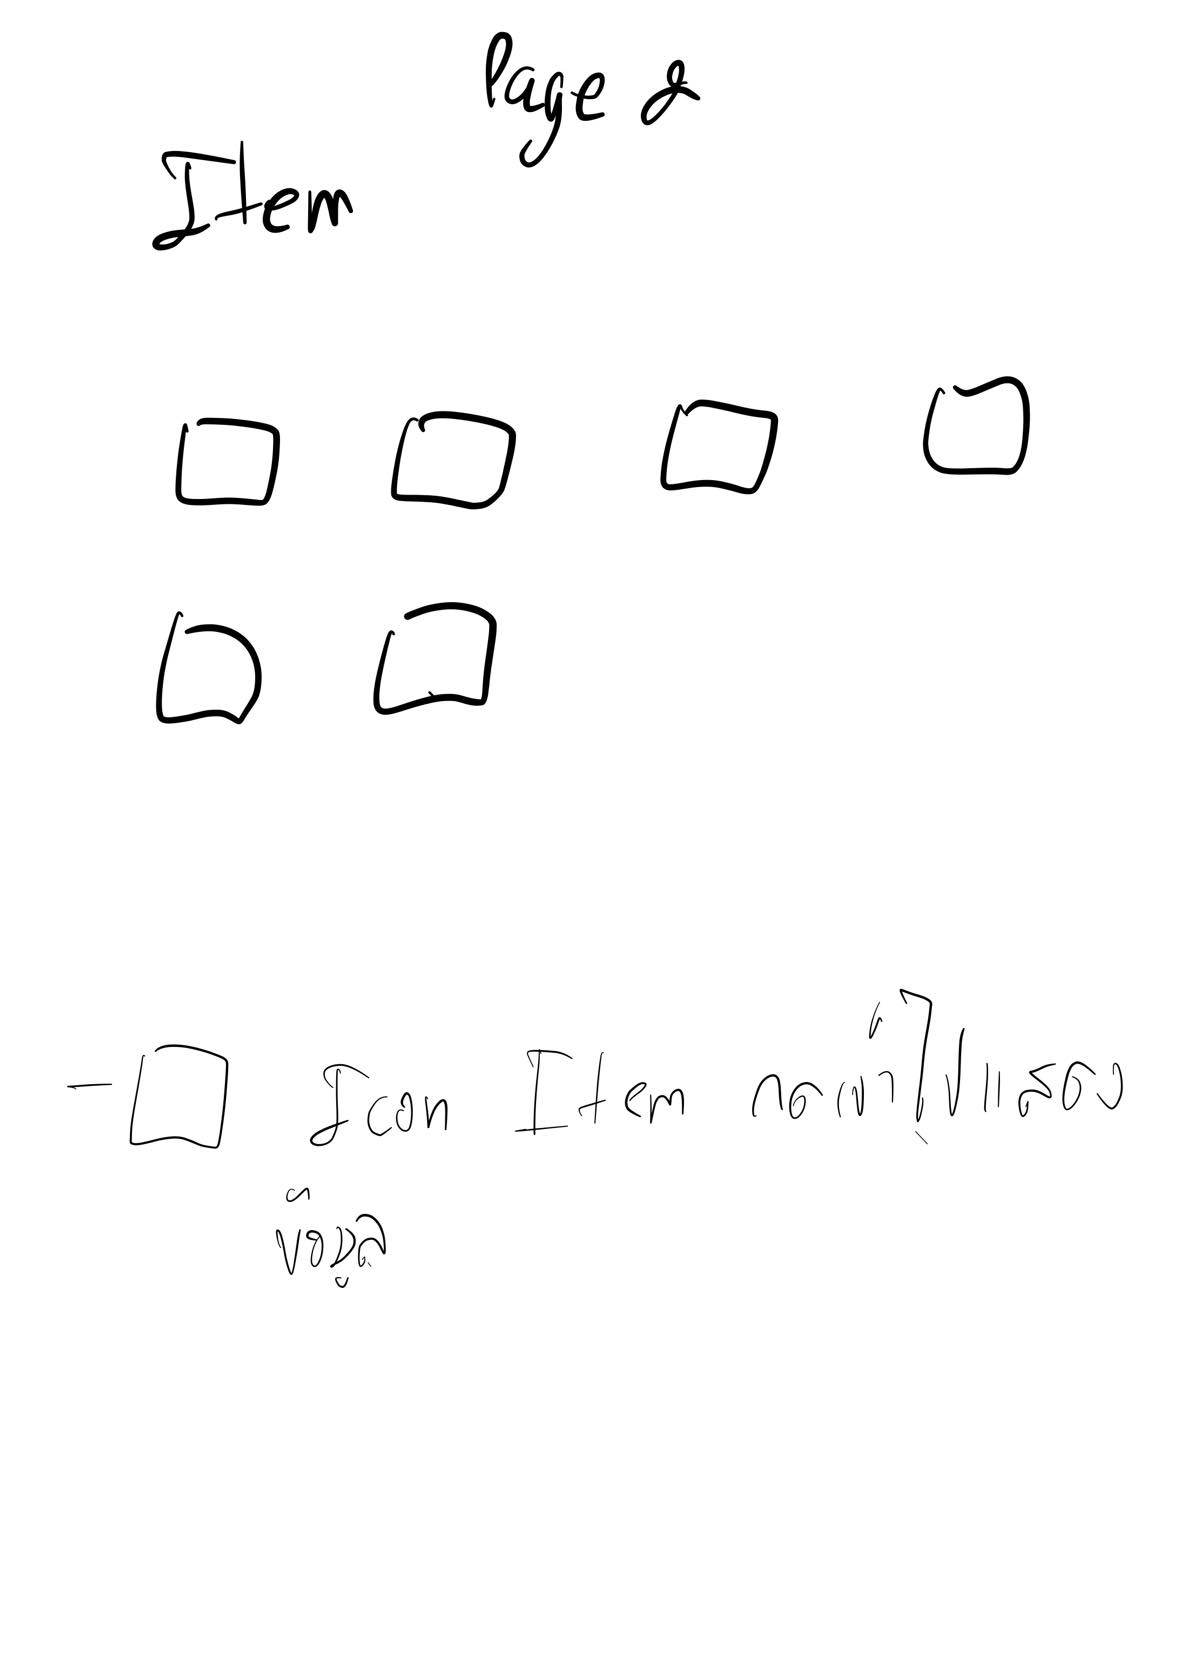 Page 2
Item
- Icon Item กดเข้าไปแสดง
ข้อมูล